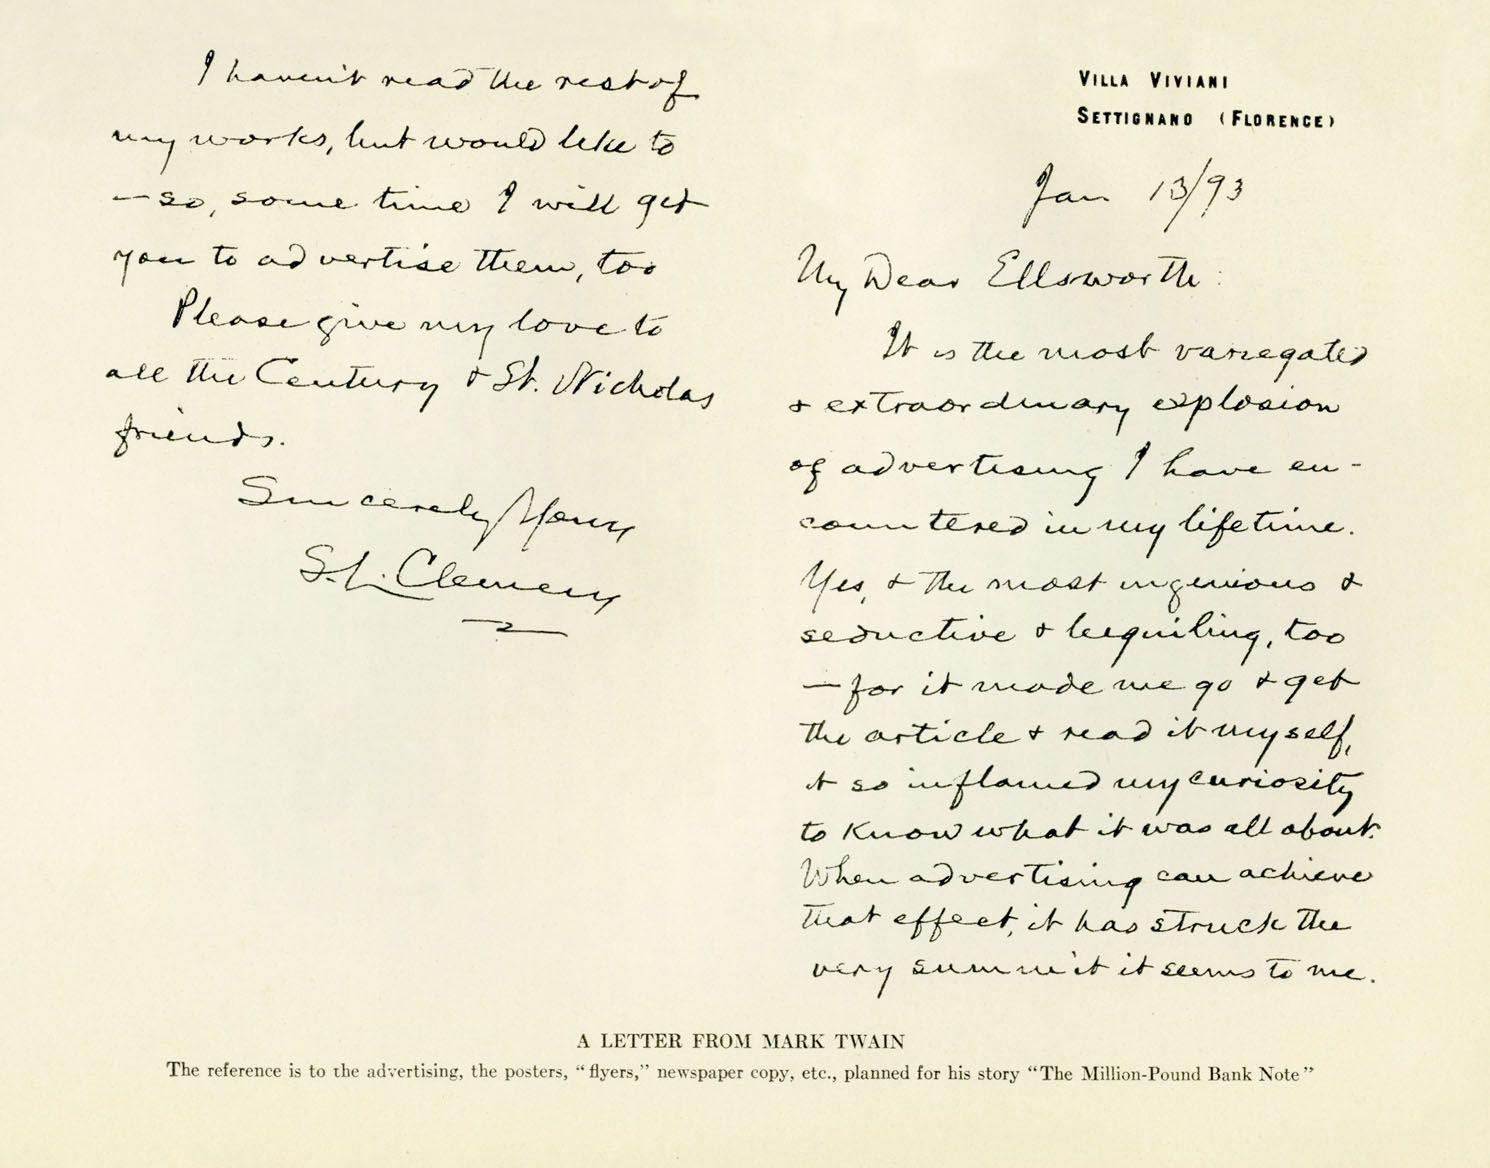 VILLA VIVIANI
SETTIGNANO (FLORENCE)
Jan 13/93
My Dear Ellsworth:
It is the most variegated
& extraordinary explosion
of advertising I have en-
countered in my lifetime.
Yes, & the most ingenious &
seductive & beguiling, too
— for it made me go & get
the article & read it myself,
it so inflamed my curiosity
to know what it was all about.
When advertising can achieve
that effect, it has struck the
very summit it seems to me.
I haven't read the rest of
my works, but would like to
— so, some time I will get
you to advertise them, too
Please give my love to
all the Century & St. Nicholas
friends.
Sincerely Yours
S. L. Clemens
A LETTER FROM MARK TWAIN
The reference is to the advertising, the posters, “flyers,” newspaper copy, etc., planned for his story “The Million-Pound Bank Note”